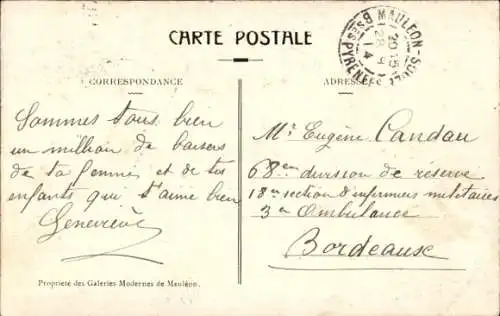 CARTE POSTALE
CORRESPONDANCE
Sommes tous bien
un million de baisers
de ta femme et de tes
enfants qui t'aime bien
Geneviève
Propriété des Galeries Modernes de Mauléon.
MAULEON-SOULE
20-15
28-9
14
BSES PYRENEES
ADRESSE
Mr Eugène Candau
68em division de réserve
18e section d'infirmiers militaires
3e Ambulance
Bordeaux